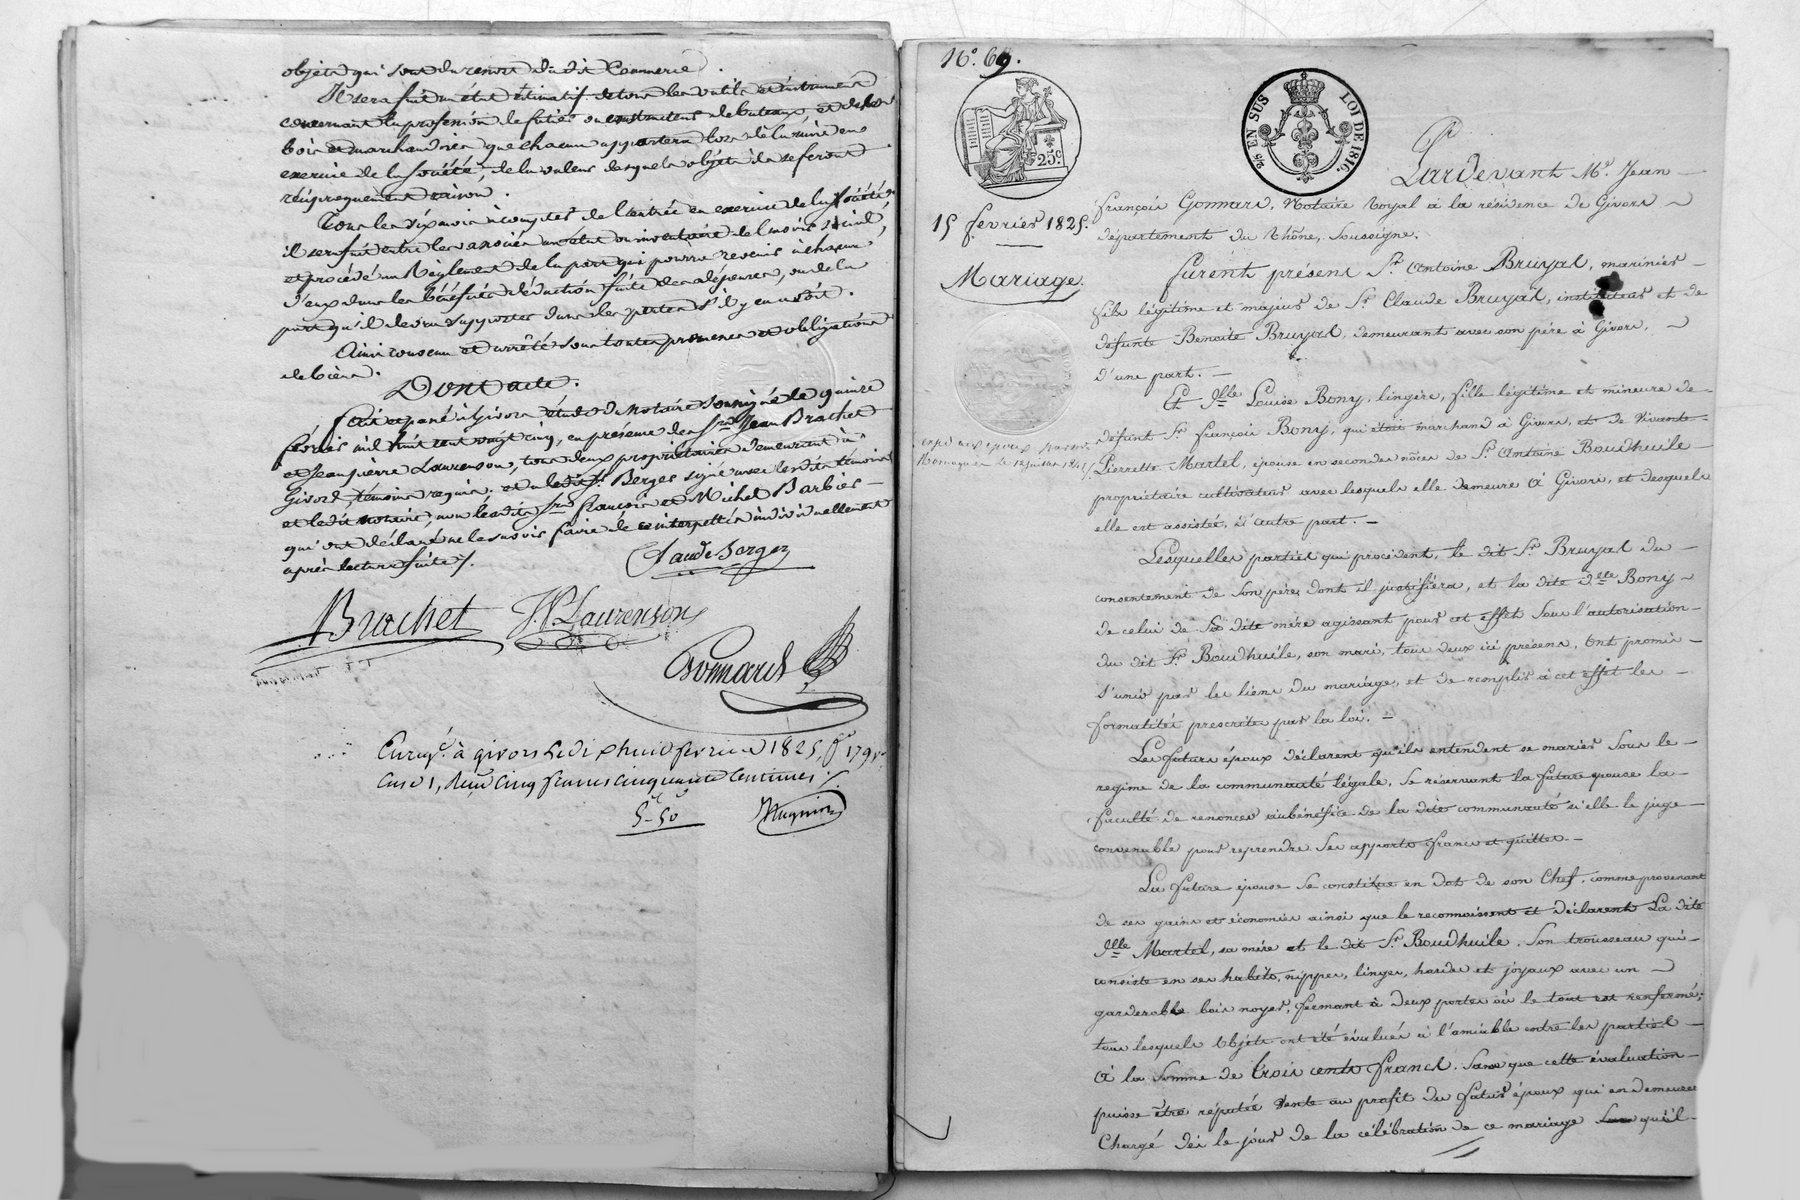 objets qui sont du ressort du dit Commerce.
Il sera fait un état estimatif de tous les outils et instrumens
concernant la profession de futier ou constructeur de bateaux, et de tous
bois et marchandises que chacun apportera lors de la mise en
exercice de la société, de la valeur desquels objets ils se feront
réciproquement raison.
Tous les six mois à compter de l'entrée en exercice de la société
il sera fait entre les associés un état ou inventaire de l'avoir social,
et procédé au Règlement de la part qui pourra revenir à chacun
d'eux dans les bénéfices déduction faite des dépenses, ou de la
part qu'il devra supporter dans les pertes s'il y en avoit.
Ainsi convenu et arrêté sous toutes promesses et obligations
de biens.
Dont acte.
Fait et passé à Givors étude du notaire soussigné le quinze
février mil huit cent vingt cinq, en présence des Srs Jean Brachet
et Jean pierre Laurenson, tous deux propriétaires demeurant à
Givors, témoins requis. et a ledit Sr Berger signé avec lesdits témoins
et ledit notaire, non lesdits Srs françois et Michel Barbier
qui ont déclaré ne le savoir faire de ce interpellés individuellement
après lecture faite /.
Claude Berger
Brachet JP Laurenson
Gonnard
Enregé. à givors le dix huit février 1825, f° 179 v°
case 1, reçu cinq francs cinquante centimes /.
5-50
N°. 69.
25 c.
EN SUS
LOI DE 1816.
15 février 1825.
Mariage.
Pardevant Me. Jean
françois Gonnard, Notaire Royal à la résidence de Givors
département du Rhône, Soussigné.
furent présent Sr. Antoine Bruyat, marinier
fils légitime et majeur de Sr Claude Bruyat, instituteur et de
défunte Benoite Bruyat, demeurant avec son père à Givors,
d'une part.
Et Dlle Louise Bony, lingère, fille légitime et mineure de
défunt Sr françois Bony, qui était marchand à Givors, et de vivante
Pierrette Martel, épouse en secondes nôces de Sr Antoine Boudhuile
propriétaire cultivateur avec lesquels elle demeure à Givors, et desquels
elle est assistée, d'autre part.
Lesquelles parties qui procèdent, le dit Sr Bruyat du
consentement de son père, dont il justifiera, et la dite Dlle Bony
de celui de Sa dite mère agissant pour cet effet sous l'autorisation
du dit Sr Boudhuile, son mari, tous deux ici présens, Ont promis
s'unir par les liens du mariage, et de remplir à cet effet les
formalités prescrites par la loi.
Les futurs époux déclarent qu'ils entendent se marier sous le
régime de la communauté légale, se réservant la future épouse la
faculté de renoncer au bénéfice de la dite communauté si elle le juge
convenable pour reprendre ses apports francs et quittes.
La future épouse se constitue en dot de son Chef, comme provenant
de ses gains et économies ainsi que le reconnoissent et déclarent la dite
Dlle Martel, sa mère et le dit Sr Boudhuile, son trousseau qui
consiste en ses habits, nippes, linges, hardes et joyaux avec un
garderobe bois noyer, fermant à deux portes où le tout est renfermé;
tous lesquels objets ont été évalués à l'amiable entre les parties
à la somme de trois cents francs. Sans que cette évaluation
puisse être réputée vente au profit du futur époux qui en demeurera
Chargé dès le jour de la célébration de ce mariage sans qu'il